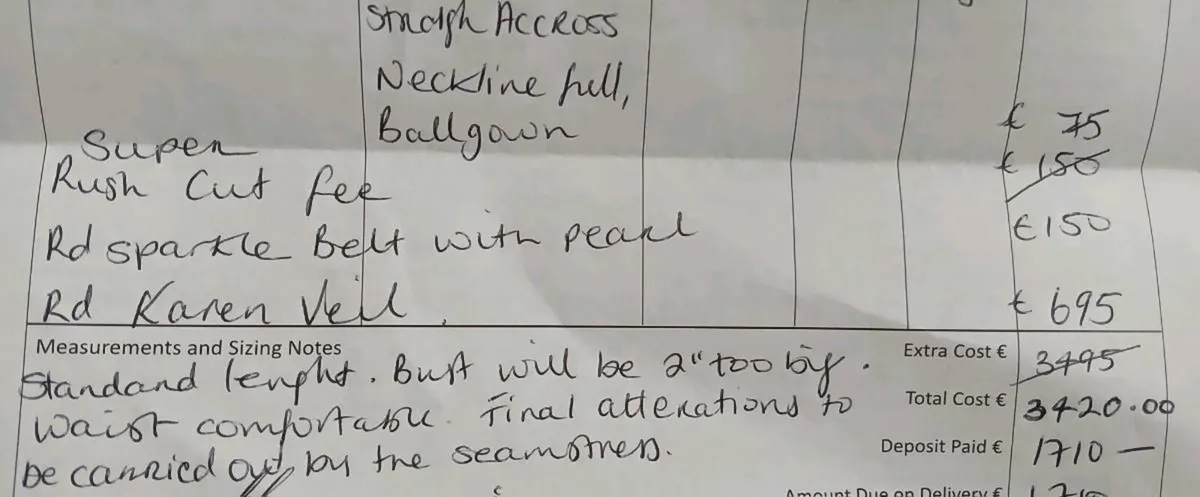 Straigh Accross
Neckline full,
Ballgown € 75
Super € 150
Rush Cut fee
Rd sparkle Belt with pearl €150
Rd Karen Veil. € 695
Measurements and Sizing Notes Extra Cost € 3495
Standard lenght. Bust will be 2" too big. Total Cost € 3420.00
Waist comfortable. Final alterations to Deposit Paid € 1710 —
be carried out by the seamstress.
Amount Due on Delivery € 1710